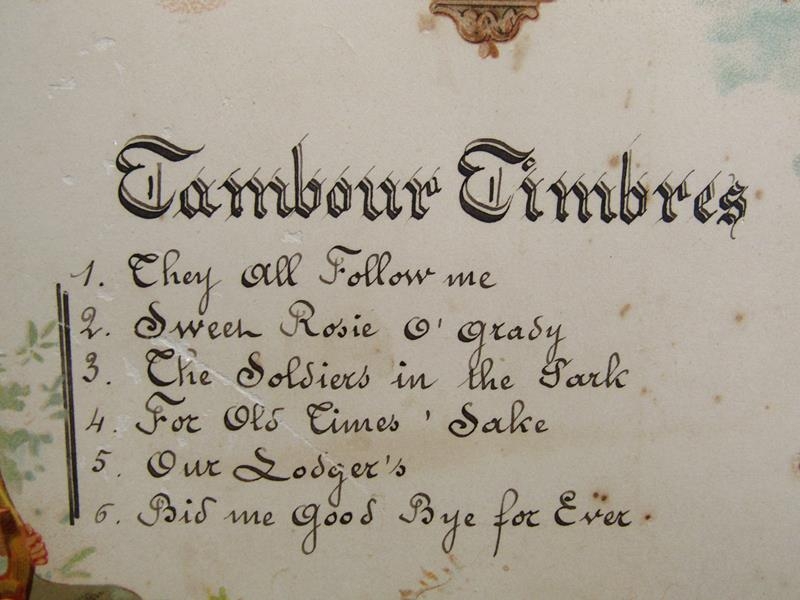 Tambour Timbres
1. They All Follow me
2. Sweet Rosie O' Grady
3. The Soldiers in the Park
4. For Old Times ' Sake
5. Our Lodger's
6. Bid me Good Bye for Ever